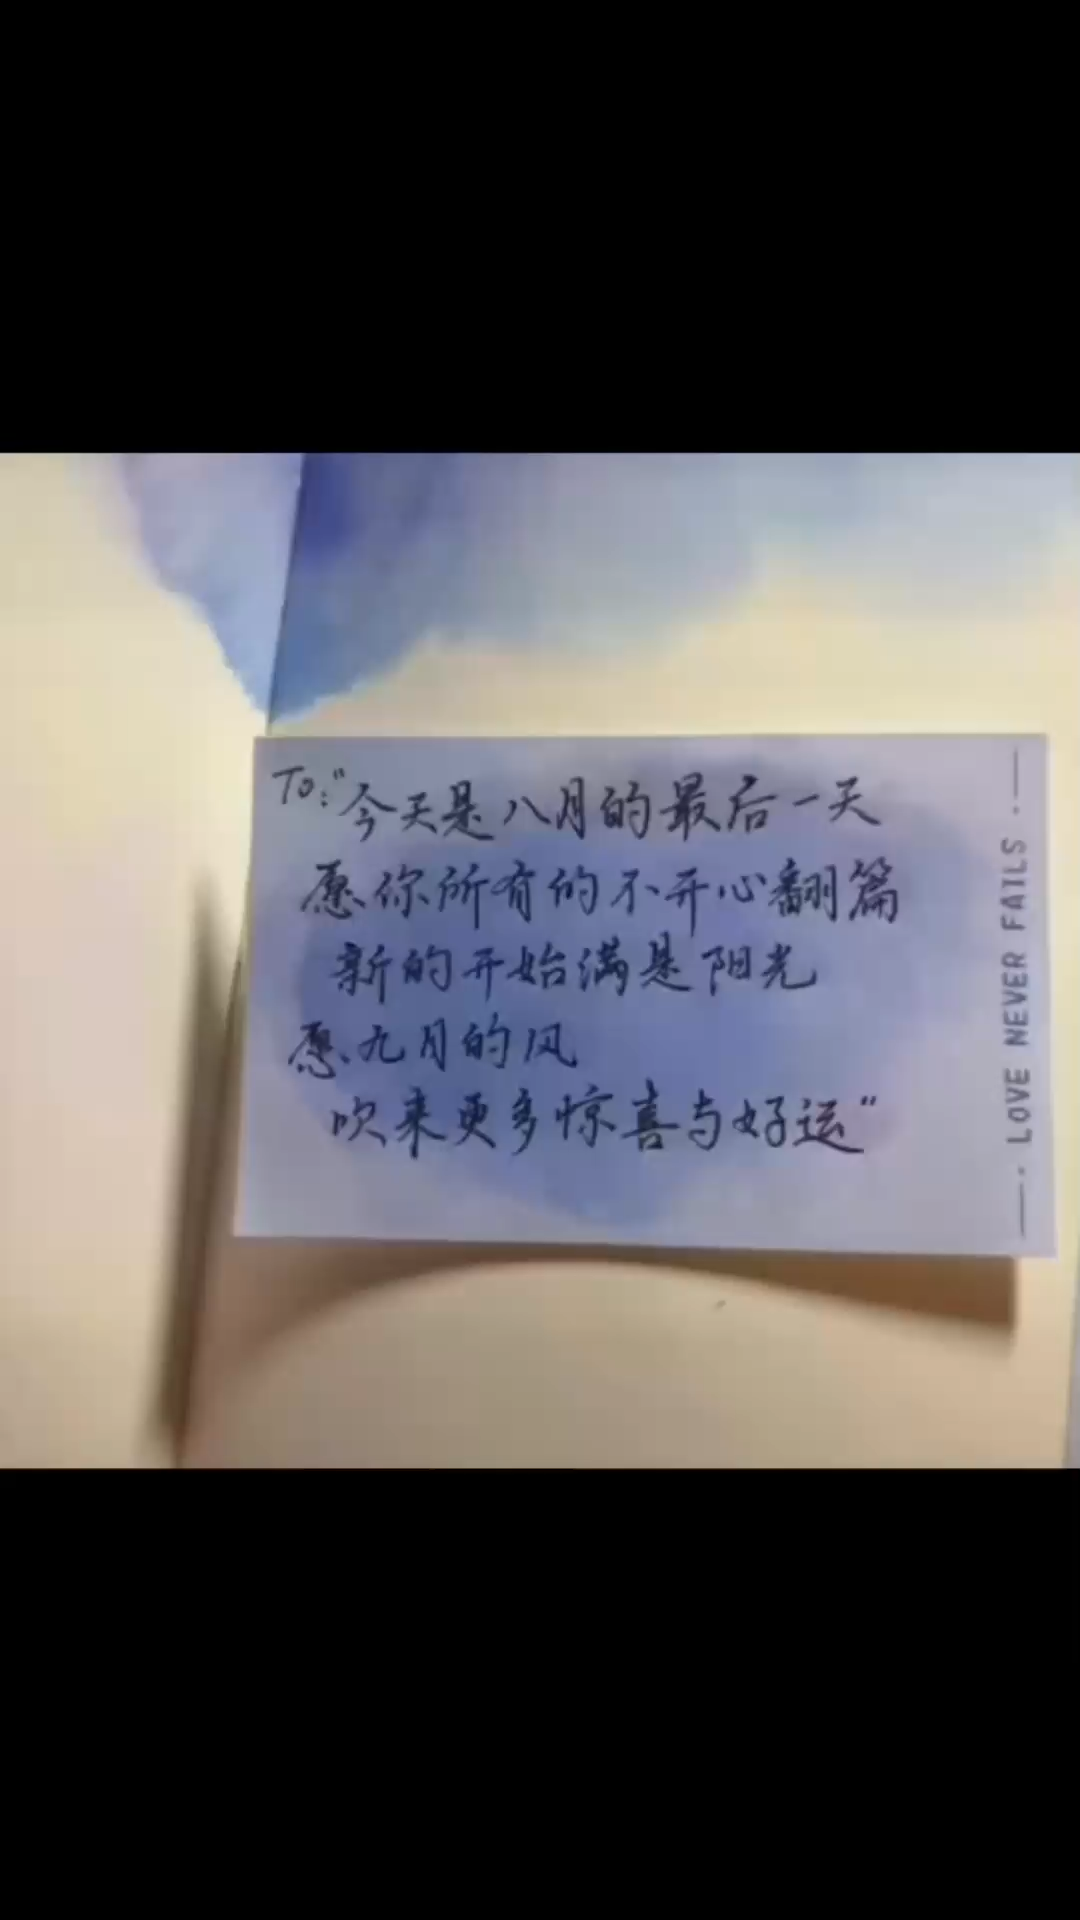 To:"今天是八月的最后一天
愿你所有的不开心翻篇
新的开始满是阳光
愿九月的风
吹来更多惊喜与好运"
LOVE NEVER FAILS